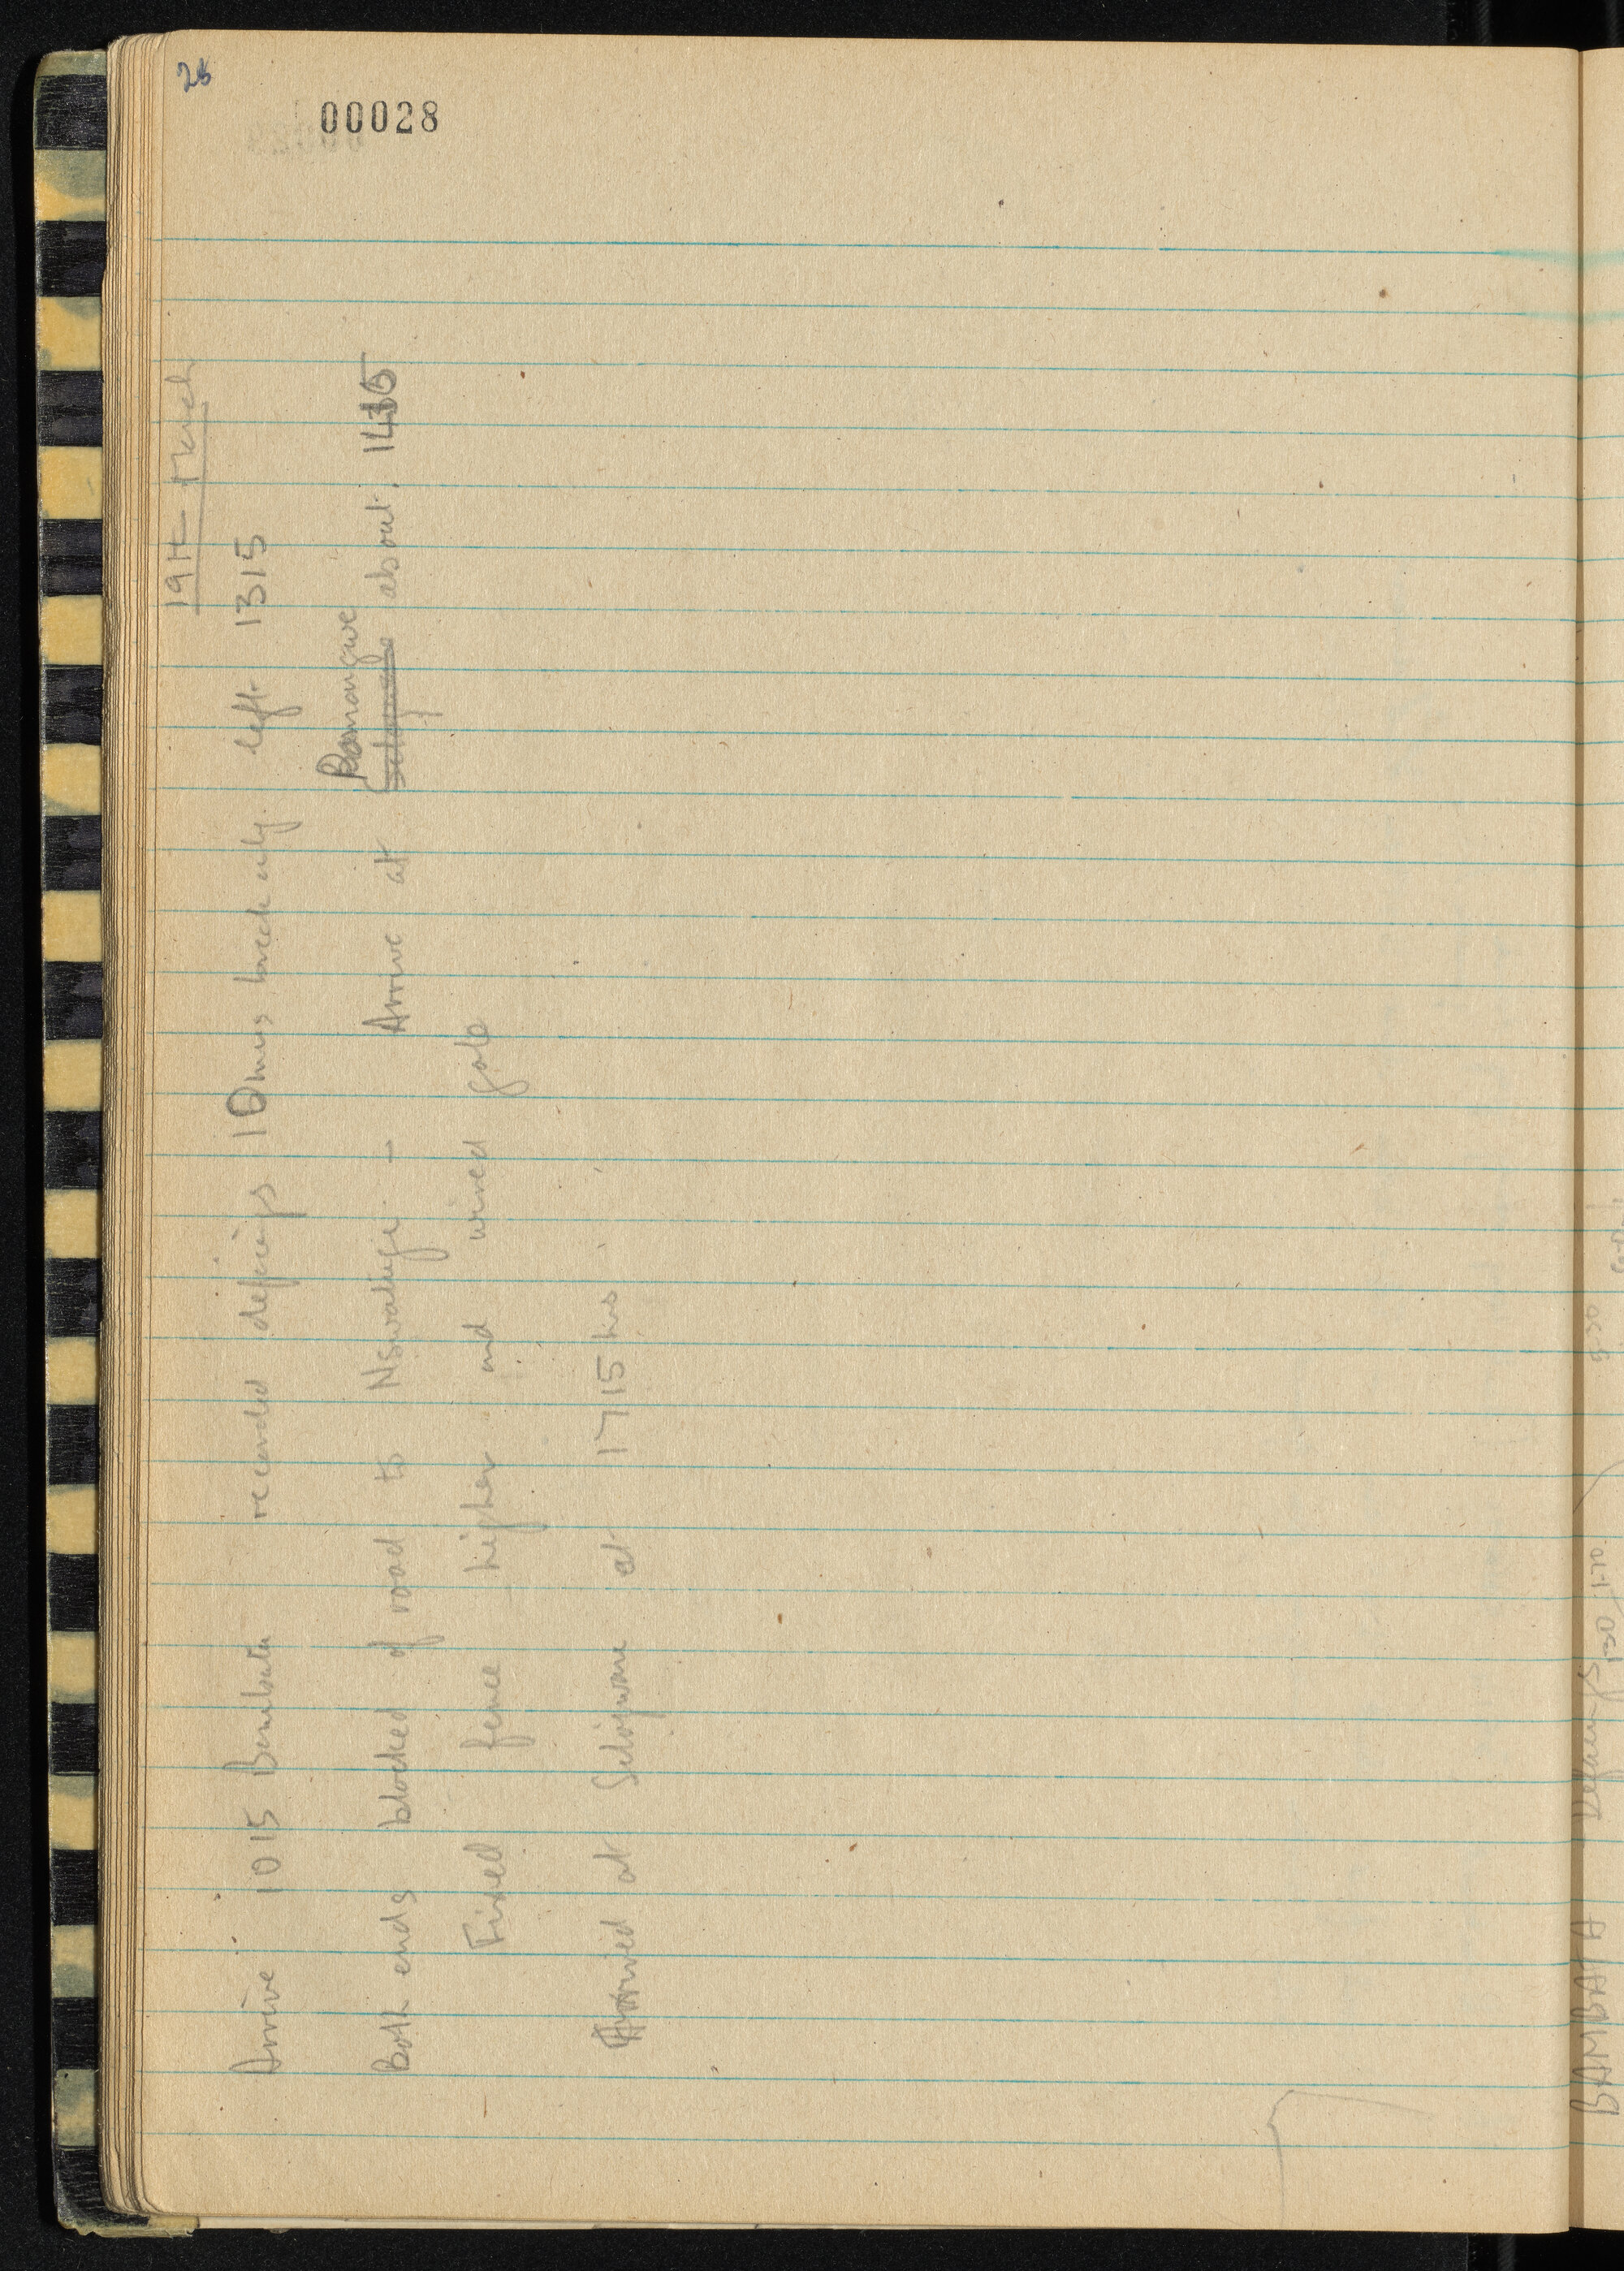 28
00028
19th March
Arrive 1015 Bambata recorded defcings 10 mins break only. left 1315
Both ends blocked of road to Nswatugi — Arrive at Pomongwe ~~Silozwane~~ about 1415
Fixed fence higher and wired gate
Arrived at Silozwane at 1715 hrs
BAMBATA Defacings 1-30/1-70. 5-30